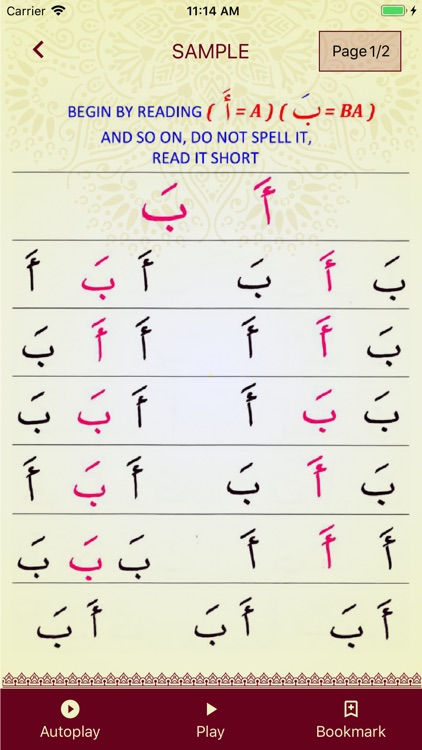 Carrier 11:14 AM
SAMPLE
Page 1/2
BEGIN BY READING ( أَ = A ) ( بَ = BA )
AND SO ON, DO NOT SPELL IT,
READ IT SHORT
أَ بَ
بَ أَ بَ أَ بَ أَ
بَ أَ أَ أَ أَ بَ
بَ بَ أَ أَ بَ بَ
بَ أَ بَ أَ بَ أَ
أَ أَ أَ بَ بَ بَ
أَ بَ أَ بَ أَ بَ
Autoplay Play Bookmark